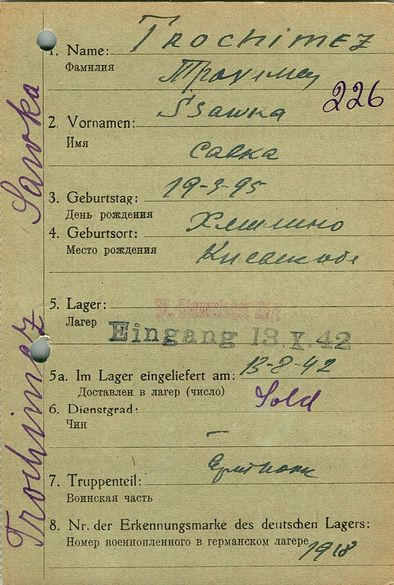 1. Name: TROCHIMEZ
Фамилия
Трохимец
226
Ssawka
2. Vornamen:
Имя
Савка
3. Geburtstag: 19-3-95
День рождения
4. Geburtsort:
Место рождения
5. Lager:
Лагер
Eingang 13.X.42
5a. Im Lager eingeliefert am: 13-8-42
Доставлен в лагер (число)
Sold
6. Dienstgrad:
Чин
–
7. Truppenteil:
Воинская часть
8. Nr. der Erkennungsmarke des deutschen Lagers:
Номер военнопленного в германском лагере
1918
Trochimez Sawka